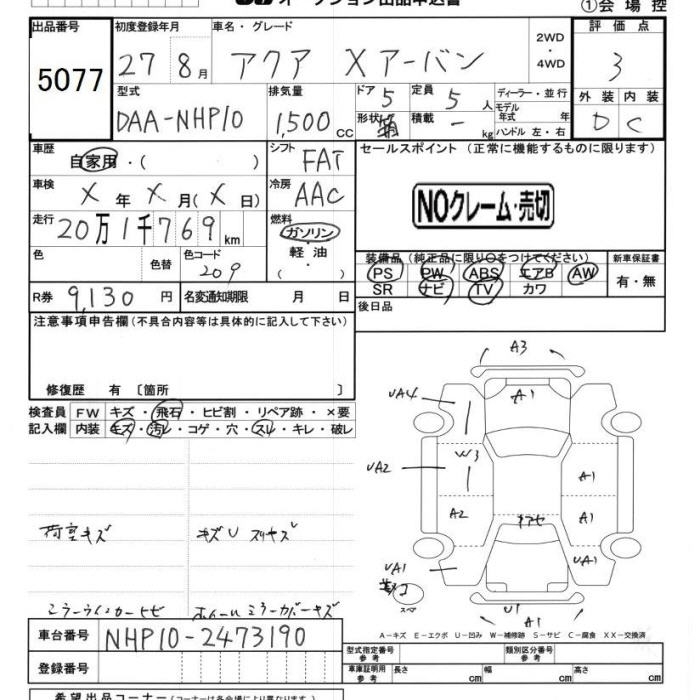 ①会場控
出品番号 初度登録年月 車名・グレード 2WD・4WD 評価点
5077 27 8月 アクア Xアーバン 3
型式 排気量 ドア 5 定員 5人 ディーラー・並行 外装 内装
DAA-NHP10 1,500cc 形状 積載 ー kg モデル年式 年 ハンドル 左・右 D C
車歴 自家用・( ) シフト FAT セールスポイント (正常に機能するものに限ります)
車検 X年X月(X日) 冷房 AAC
NOクレーム・売切
走行 20万1千769km 燃料 ガソリン・軽油・( )
色 色替 色コード 209
装備品 (純正品に限り○をつけてください) 新車保証書
PS PW ABS エアB AW 有・無
SR ナビ TV カワ
R券 9,130円 名変通知期限 月 日 後日品
注意事項申告欄 (不具合内容等は具体的に記入して下さい)
修復歴 有 〔箇所 〕
検査員記入欄 FW キズ・飛石・ヒビ割・リペア跡・×要
内装 キズ・汚レ・コゲ・穴・スレ・キレ・破レ
A3
UA4 A1
W3
UA2 A1
A2 A1
UA1 UA1
スペア
U1
A1
荷室キズ キズU スリキズ
A−キズ E−エクボ U−凹み W−補修跡 S−サビ C−腐食 XX−交換済
車台番号 NHP10-2473190
登録番号
型式指定番号 参考 類別区分番号 参考
車庫証明用 参考 長さ cm 幅 cm 高さ cm
希望出品コーナー (コーナーは各会場により異なります)